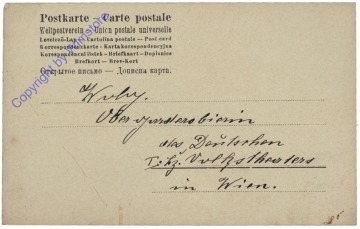 Postkarte - Carte postale
Weltpostverein - Union postale universelle
Levelező-Lap - Cartolina postale - Post card
Korrespondenzkarte - Karta korespondencyjna
Korespondenční lístek - Briefkaart - Dopisnica
Brefkort - Brev-Kort
Открытое письмо - Дописна карта.
Copyright by ... store
Obergarderobierin
des Deutschen
Volkstheaters
in Wien.